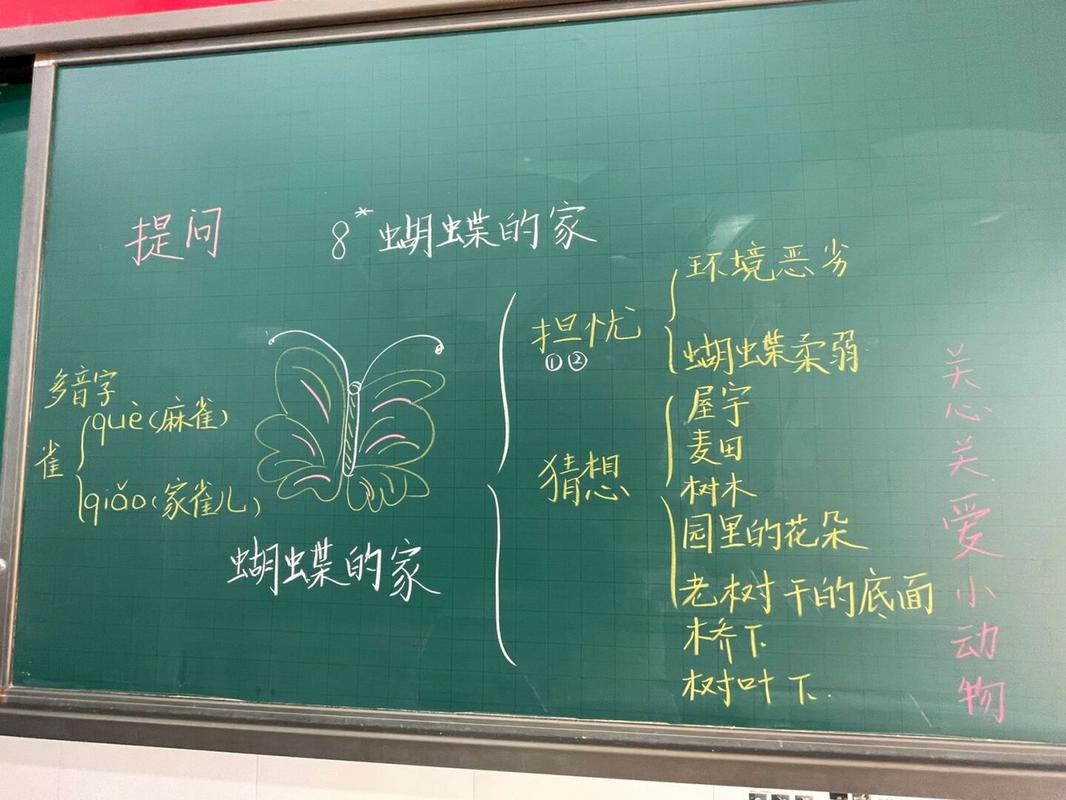 提问
8*蝴蝶的家
多音字
雀
què(麻雀)
qiǎo(家雀儿)
蝴蝶的家
担忧
①②
环境恶劣
蝴蝶柔弱
猜想
屋宇
麦田
树木
园里的花朵
老树干的底面
桥下
树叶下
关心关爱小动物